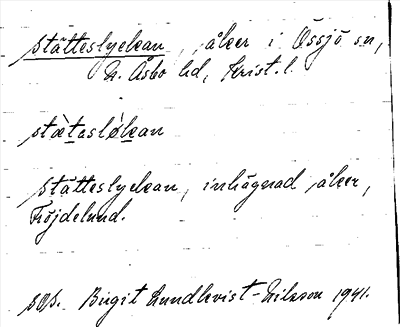 Stätteslyckan, åker i Össjö sn,
N. Åsbo hd, Krist. l.
stæ̀tasløkan
Stätteslyckan, inhägnad åker,
Fröjdelund.
Birgit Lundkvist-Nilsson 1941.